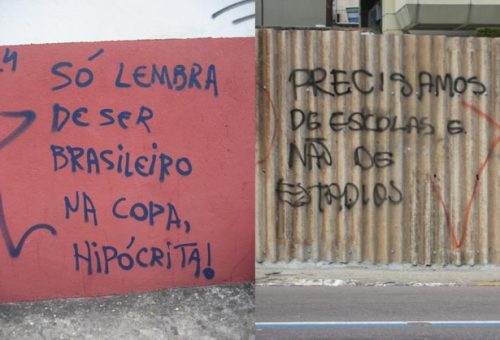 SÓ LEMBRA
DE SER
BRASILEIRO
NA COPA,
HIPÓCRITA!
PRECISAMOS
DE ESCOLAS E
NÃO DE
ESTÁDIOS